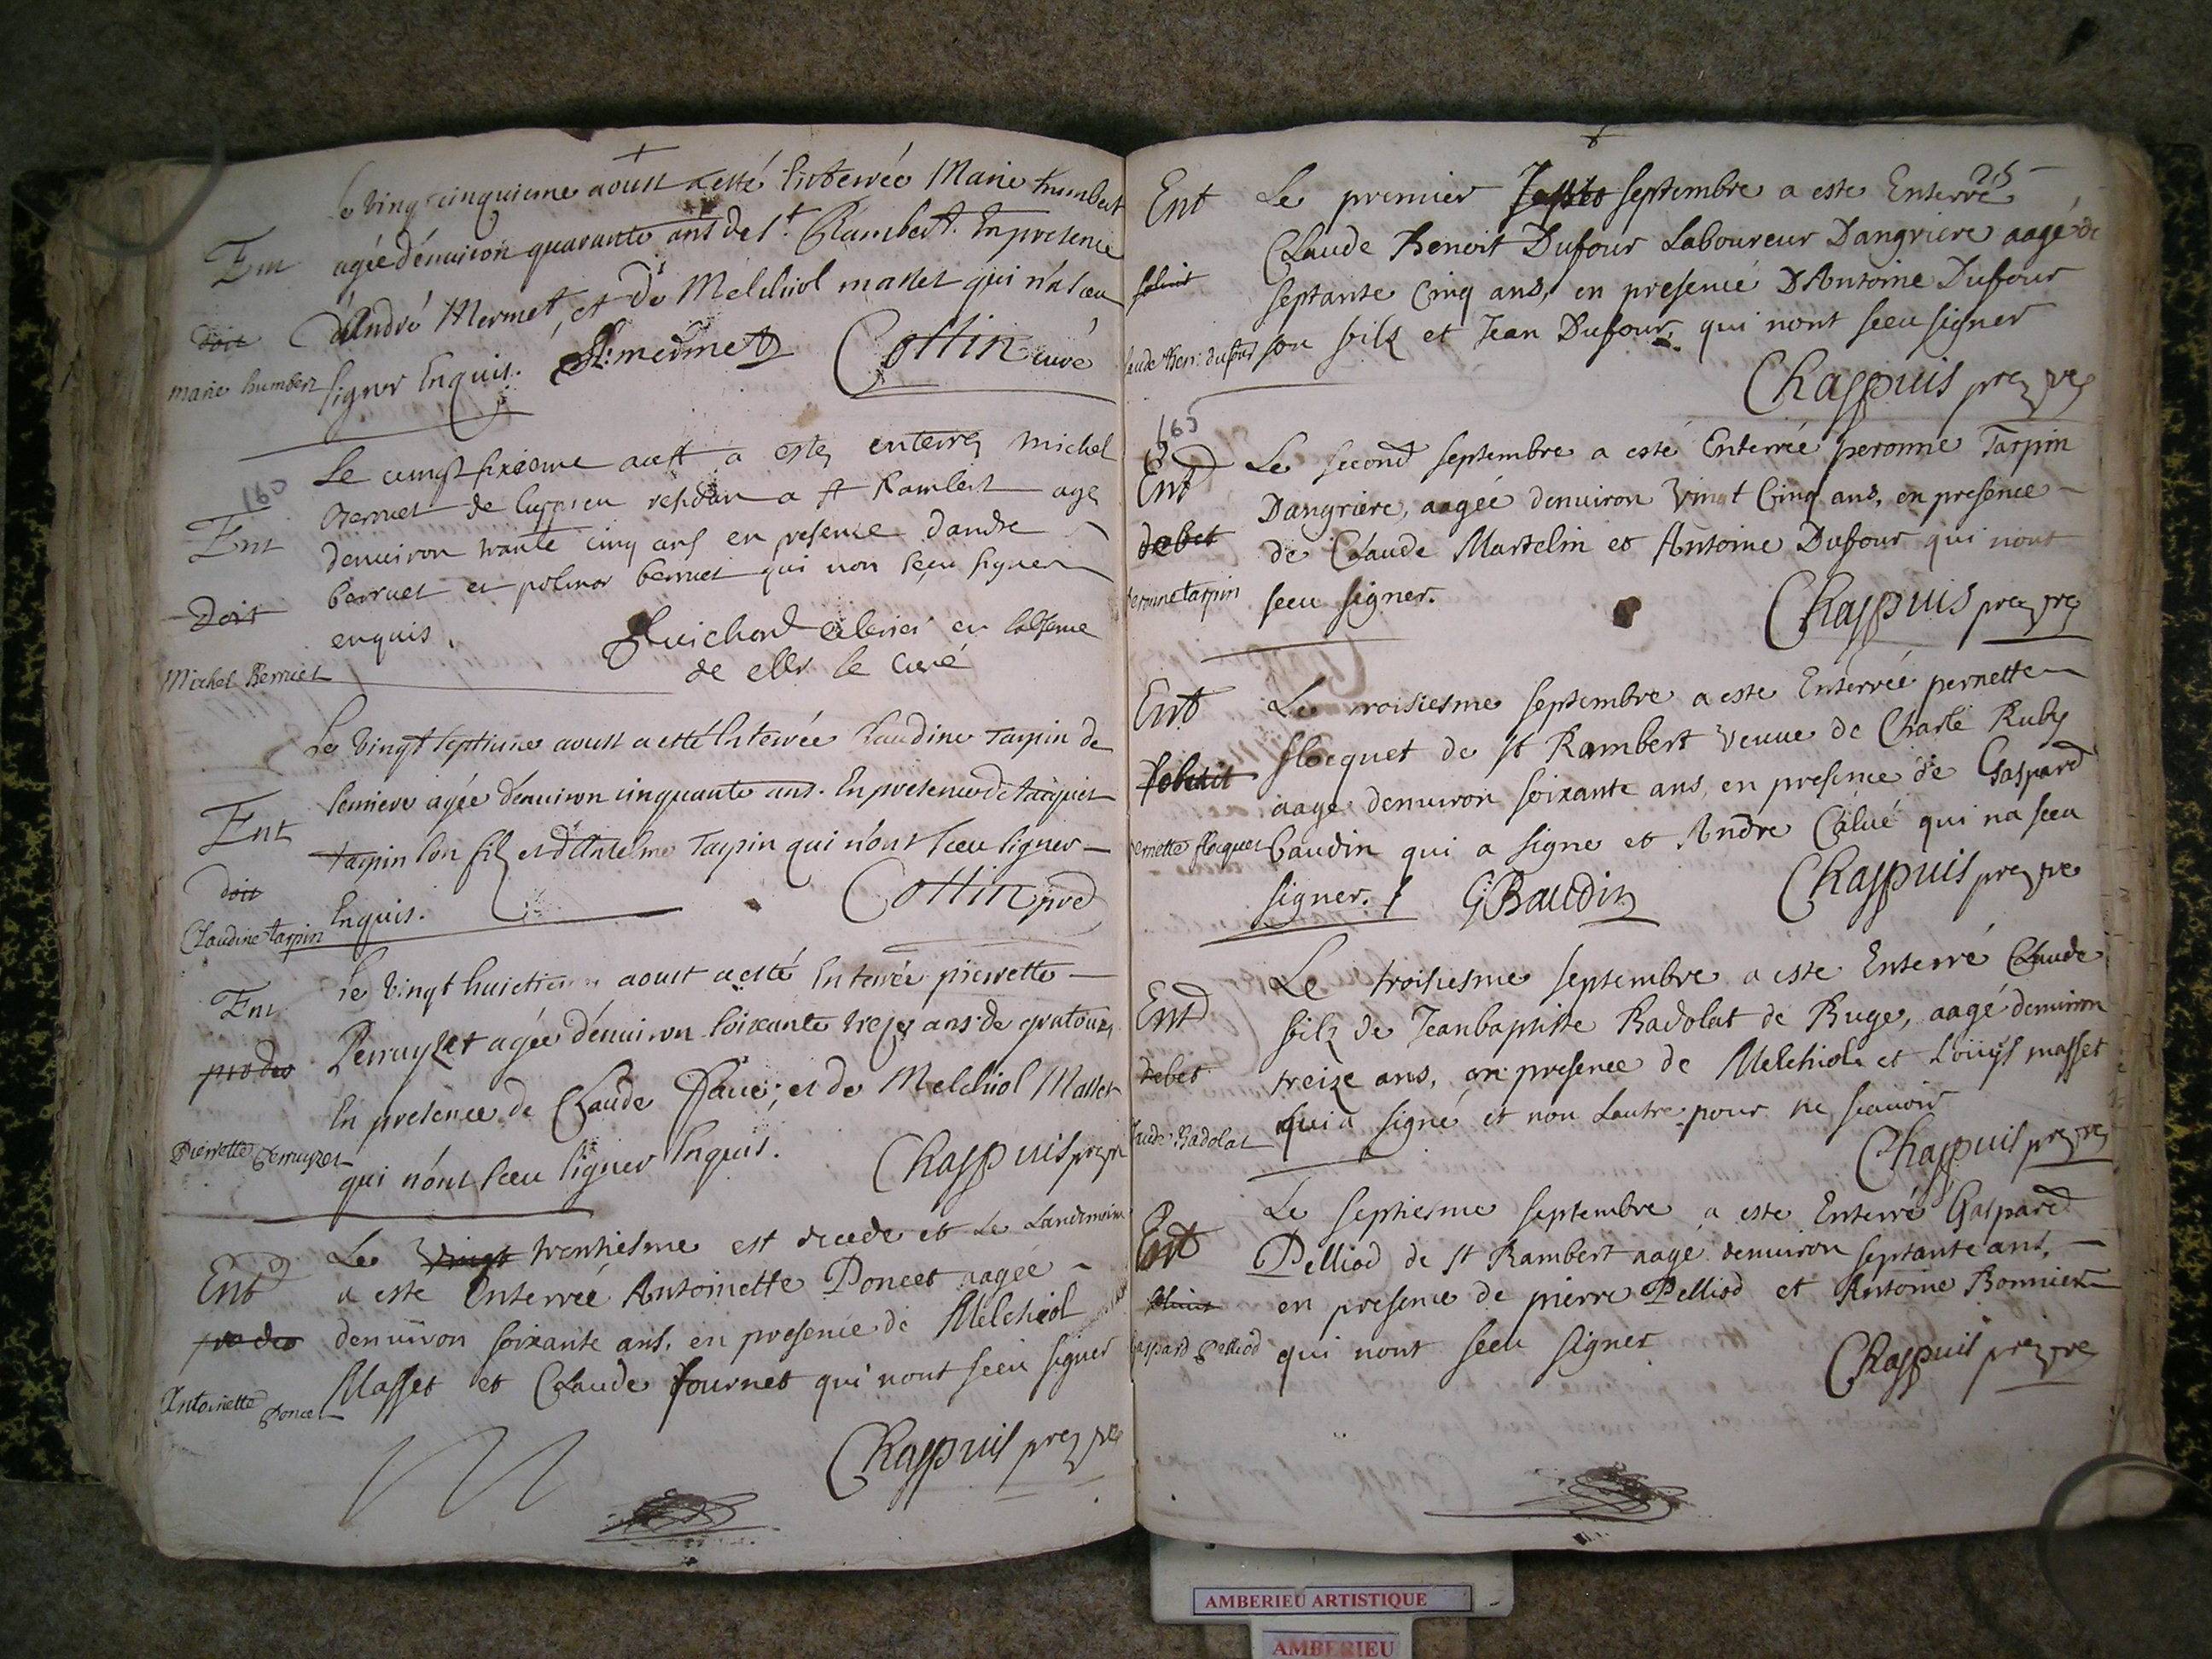 Le vingt cinquieme aoust a esté Enterrée Marie humbert
Ent
agée d'énuiron quarante ans de St. Rambert. En presence
d'André Mermet, et de Melchiol masset qui n'a sceu
doit
marie humbert
signer Enquis. A: mermet Cottin curé
Le vingt sixiesme aust a esté enterré michel
160
Ent
bernet de resident a st Rambert agé
denuiron trante cinq ans en presence dandre
bernet et bernet qui non sceu signer
Doit
enquis. Guichard en labsence
de le curé
Michel Bernet
Le vingt septieme aoust a esté Enterrée Claudine Tarpin de
Ent
serriere agée d'énuiron cinquante ans. En presence de Jacques
tarpin son filz et d'Antelme Tarpin qui n'ont sceu signer
doit
Enquis. Cottin
Claudine tarpin
Le vingt huictieme aoust a esté Enterrée pierrette
Ent
Perruyzet agée d'énuiron soixante treze ans de
pro deo
En presence de Claude et de Melchiol Masset
Pierrette Perruyzet
qui n'ont sceu signer Enquis. Chappuis
Le vingt trentiesme est decede et Le Landemain
Ent
a este Enterreé Antoinette Poncet aagée
pro deo
denuiron soixante ans. en presence de Melchiol
Masset et Claude fournet qui nont sceu signer
Antoinette
Poncet
Chappuis
25
Ent
Le premier septembre a este Enterré
Claude Benoit Dufour Laboureur Dangriere aagé de
soluit
septante Cinq ans, en presence D'Antoine Dufour
laude Ben: dufour
son filz et Jean Dufour, qui nont sceu signer
Chappuis
163
Ent
Le second septembre a esté Enterrée peronne Tarpin
Dangriere, aagée denuiron vingt Cinq ans, en presence
debet
de Claude Martelin et Antoine Dufour qui nont
eronne tarpin
sceu signer.
Chappuis
Ent
Le troisiesme septembre a este Enterrée pernette
flocquet de st Rambert veuue de Charle Ruby
soluit
aage denuiron soixante ans, en presence de Gaspard
ernette flocquet
baudin qui a signe et Andre Caliué qui na sceu
signer. G Baudin Chappuis
Le troisiesme septembre a este Enterré Claude
Ent
filz de Jeanbaptiste Radolat de Ruge, aagé denuiron
debet
treize ans, en presence de Melchiol et Loüys masset
laude Radolat
qui a signé et non Lautre pour ne scauoir
Chappuis
Le septiesme septembre a este Enterré Gaspard
Ent
Pelliod de st Rambert aagé denuiron septante ans,
soluit
en presence de pierre Pelliod et Antoine Bonnier
aspard Pelliod
qui nont sceu signer
Chappuis
AMBERIEU ARTISTIQUE
AMBERIEU